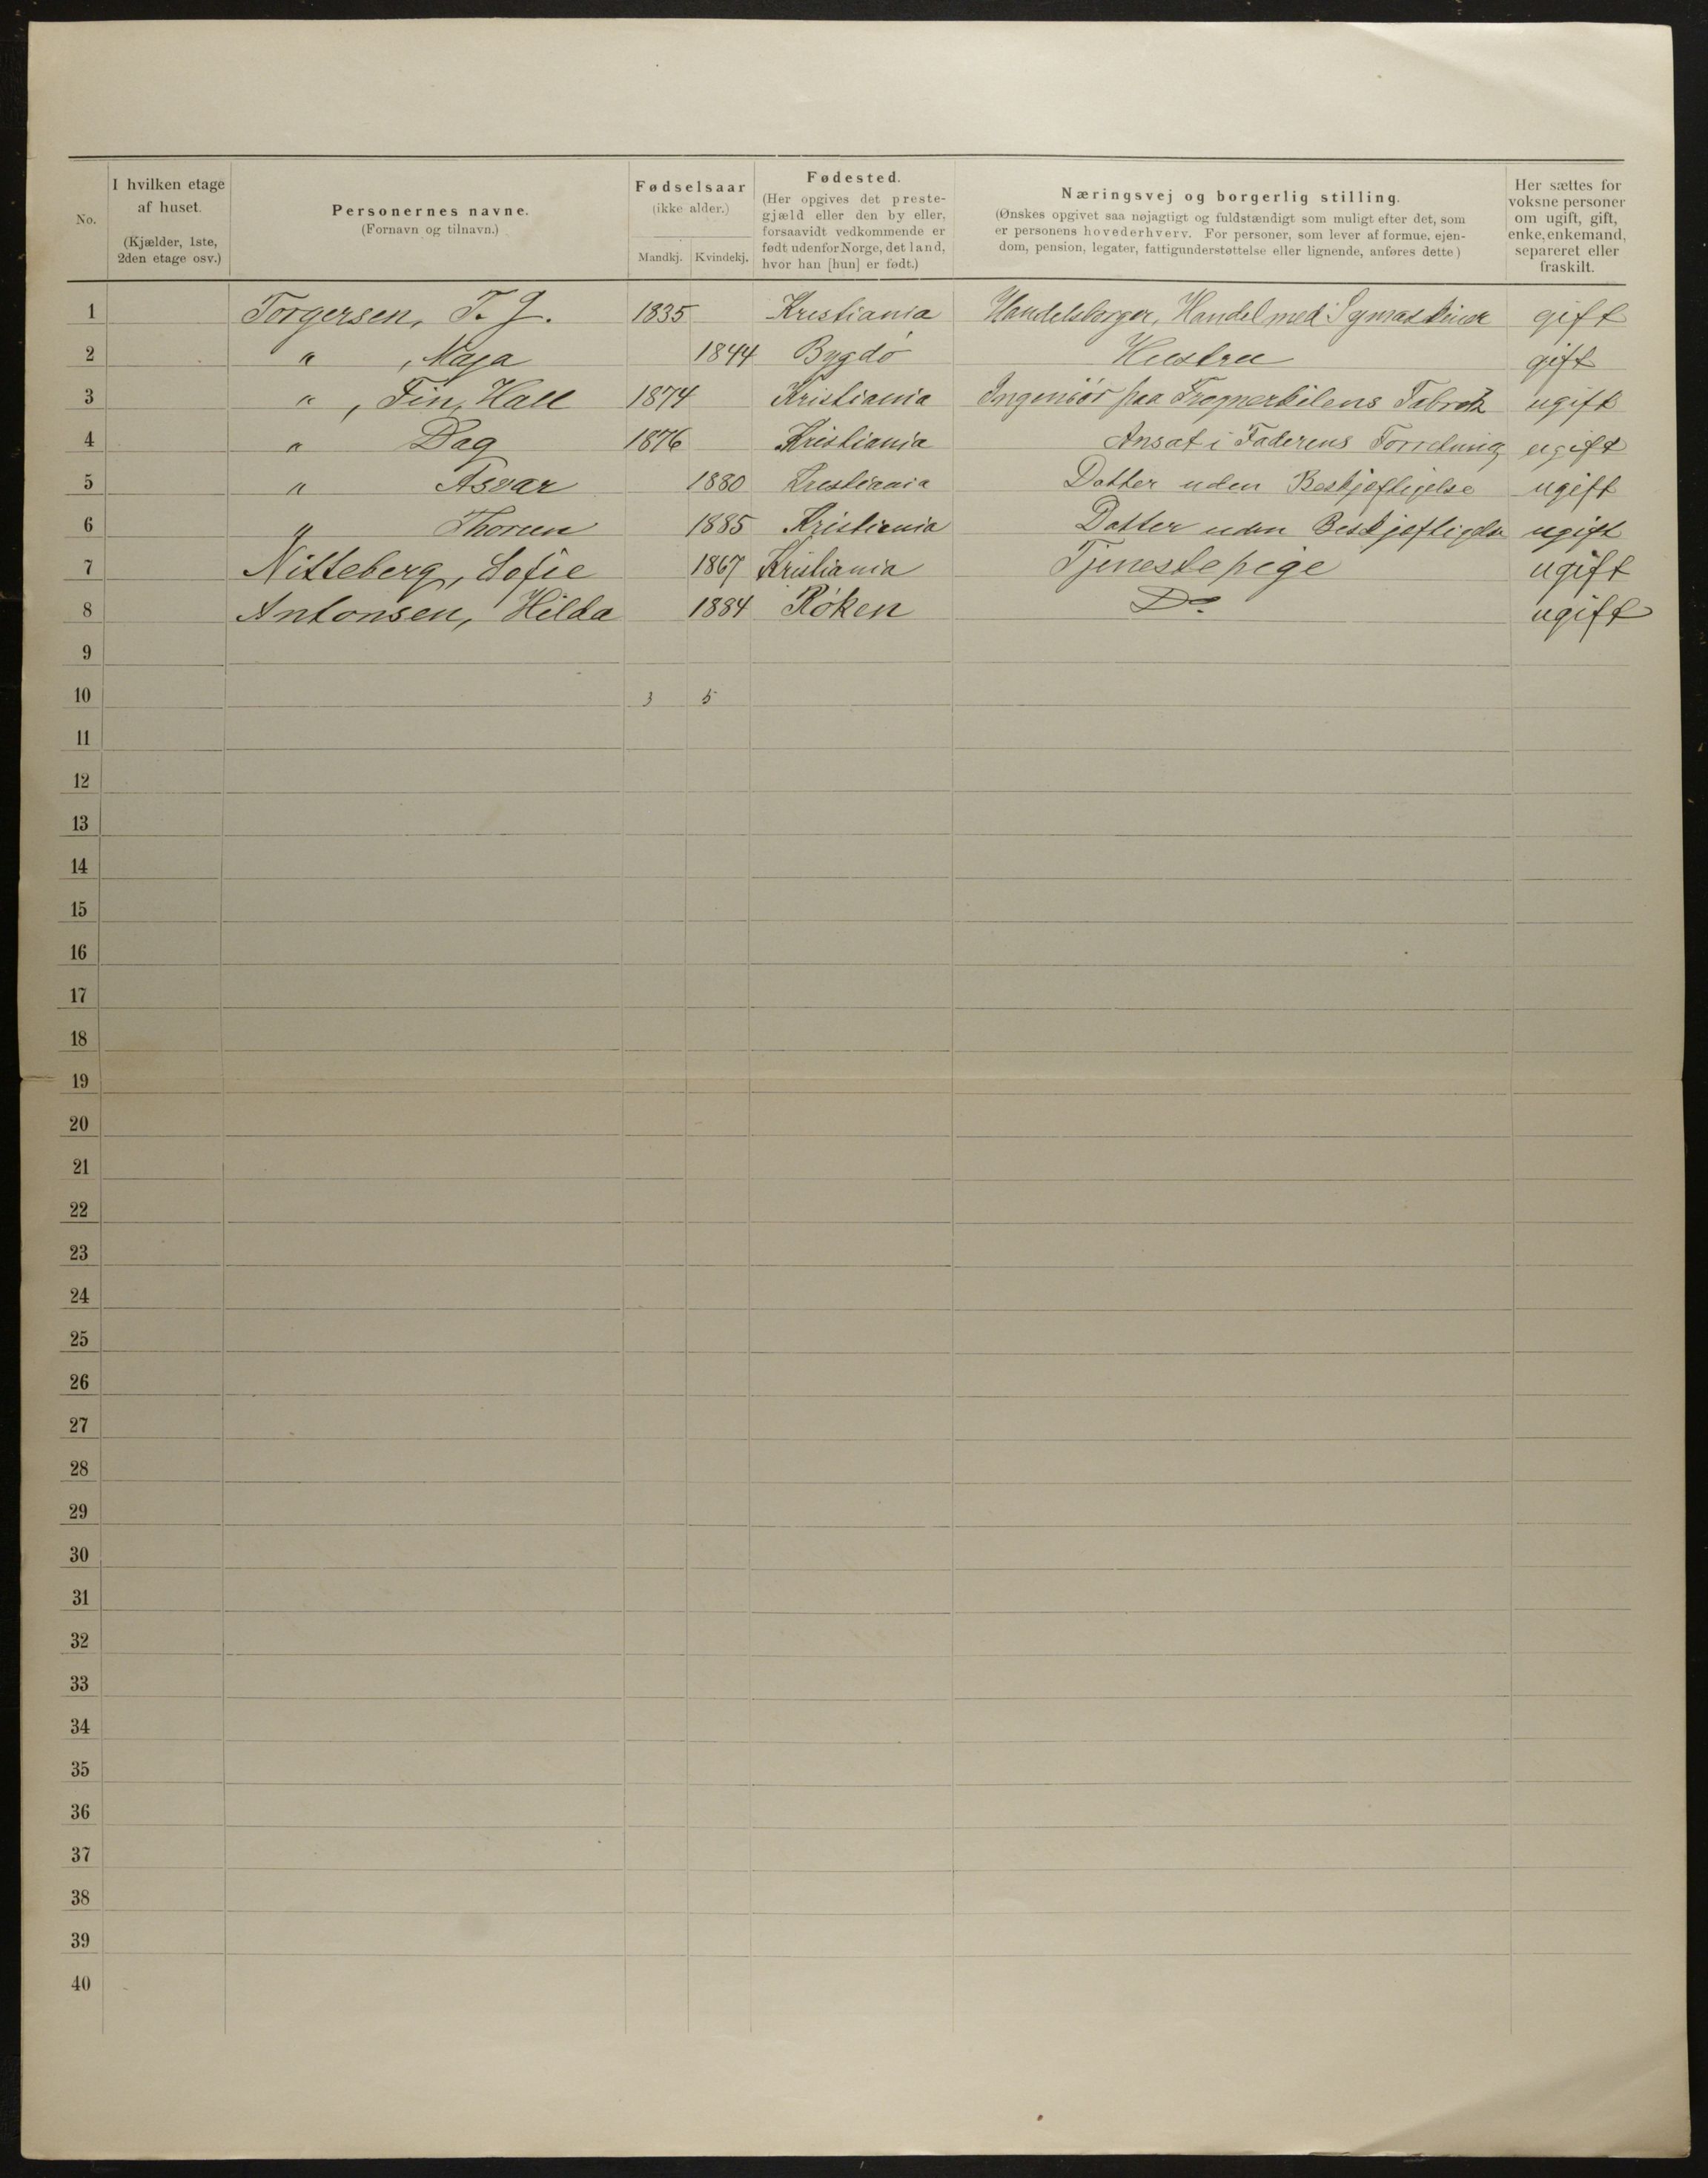 No.
I hvilken etage af huset. (Kjælder, 1ste, 2den etage osv.)
Personernes navne. (Fornavn og tilnavn.)
Fødselsaar (ikke alder.) Mandkj. Kvindekj.
Fødested. (Her opgives det prestegjæld eller den by eller, forsaavidt vedkommende er født udenfor Norge, det land, hvor han [hun] er født.)
Næringsvej og borgerlig stilling. (Ønskes opgivet saa nøjagtigt og fuldstændigt som muligt efter det, som er personens hovederhverv. For personer, som lever af formue, ejendom, pension, legater, fattigunderstøttelse eller lignende, anføres dette)
Her sættes for voksne personer om ugift, gift, enke, enkemand, separeret eller fraskilt.
1 Torgersen, T. J. 1835 Kristiania Handelsborger, Handel med Symaskiner gift
2 " , Maja 1844 Bygdö Hustru gift
3 " , Fin, Hall 1874 Kristiania Ingeniör paa Frognerkilens Fabrik ugift
4 " Dag 1876 Kristiania Ansat i Faderens Forretning ugift
5 " Asvar 1880 Kristiania Datter uden Beskjæftigelse ugift
6 " Thorun 1885 Kristiania Datter uden ugift
7 Nitteberg, Sofie 1867 Kristiania Tjenestepige ugift
8 Antonsen, Hilda 1884 Røken Do. ugift
9
10 3 5
11
12
13
14
15
16
17
18
19
20
21
22
23
24
25
26
27
28
29
30
31
32
33
34
35
36
37
38
39
40